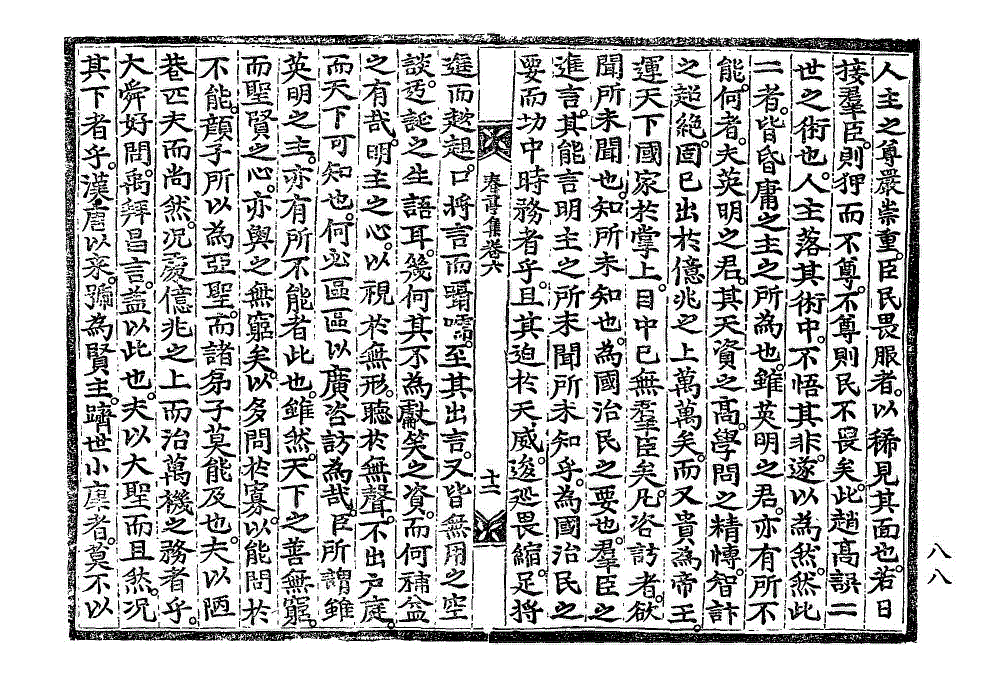 人主之尊嚴崇重。臣民畏服者。以稀見其面也。若日
接羣臣。則狎而不尊。不尊則民不畏矣。此趙高誤二
世之術也。人主落其術中。不悟其非。遂以爲然。然此
二者。皆昏庸之主之所為也。雖英明之君。亦有所不
能。何者。夫英明之君。其天資之高。學問之精。博智計
之超絶。固已出於億兆之上萬萬矣。而又貴為帝王。
運天下國家於掌上。目中已無羣臣矣。凡咨訪者。欲
聞所未聞也。知所未知也。為國治民之要也。羣臣之
進言。其能言明主之所未聞所未知乎。為國治民之
要而功中時務者乎。且其迫於天威。逡廵畏縮。足將
春亭集卷六
十二
進而趑趄。口將言而囁嚅。至其出言。又皆無用之空
談。迃誕之生語耳。幾何其不為獻笑之資。而何補益
之有哉。明主之心。以視於無形。聽於無聲。不出戶庭。
而天下可知也。何必區區以廣咨訪為哉。臣所謂雖
英明之主。亦有所不能者此也。雖然。天下之善無窮。
而聖賢之心。亦與之無窮矣。以多問於寡。以能問於
不能。顔子所以為亞聖。而諸弟子莫能及也。夫以陋
巷匹夫而尚然。況處億兆之上而治萬機之務者乎。
大舜好問。禹拜昌言。盖以此也。夫以大聖而且然。况
其下者乎。漢唐以來。號為賢主。躋世小康者。莫不以
八八